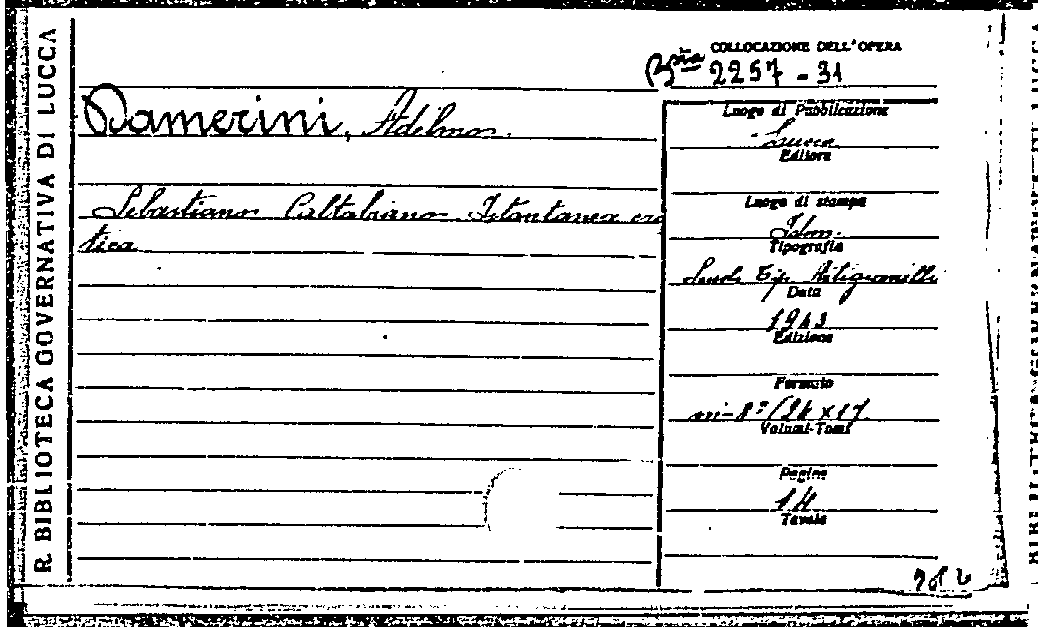 R. BIBLIOTECA GOVERNATIVA DI LUCCA
COLLOCAZIONE DELL'OPERA
2257-31
Damerini, Adelmo.
Sebastiano Caltabiano Istantanea cri
tica
Luogo di Pubblicazione
Lucca
Editore
Luogo di stampa
Idem.
Tipografia
Scuola Tip. Artigianelli
Data
1943
Edizione
Formato
in-8º/24x17
Volumi-Tomi
Pagine
14
Tavole